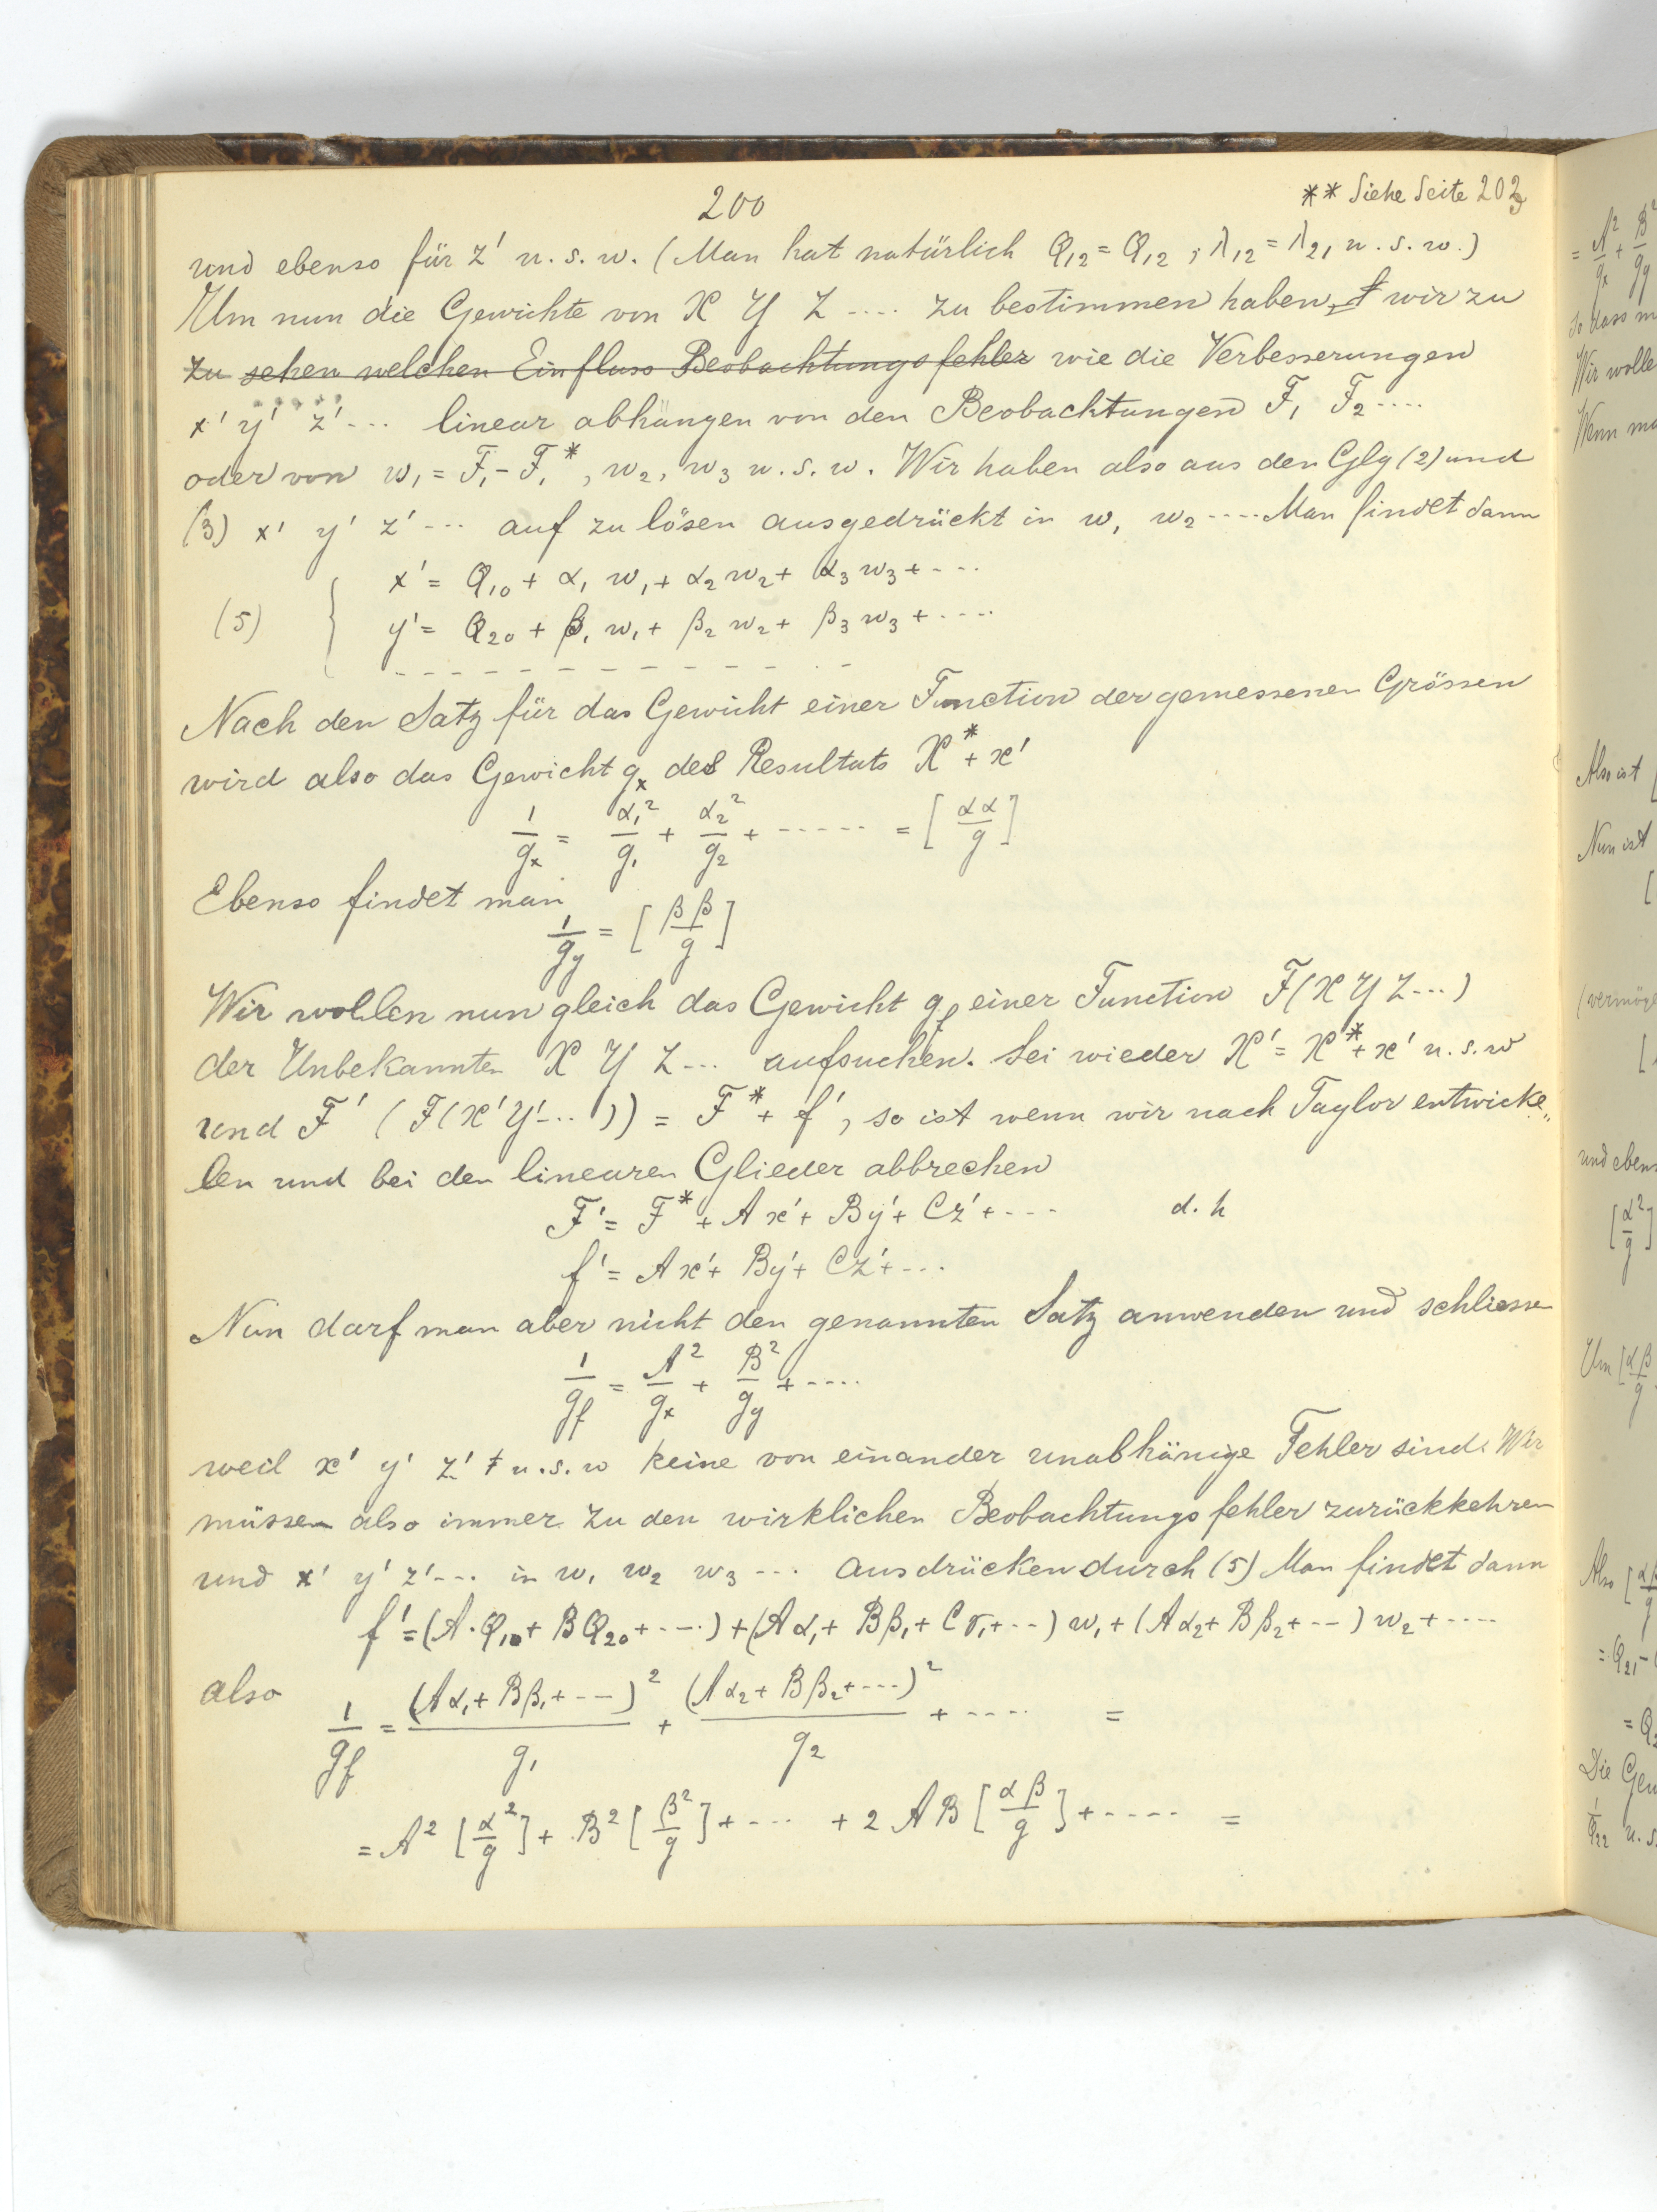 200
** Siehe Seite 203
und ebenso für z' u. s. w. (Man hat natürlich Q₁₂ = Q₁₂ ; λ₁₂ = λ₂₁ u. s. w.)
Um nun die Gewichte von X Y Z .... zu bestimmen haben wir zu
zu sehen welchen Einfluss Beobachtungsfehler wie die Verbesserungen
x' y' z' ... linear abhängen von den Beobachtungen F₁ F₂ ....
oder von w₁ = F₁ - F₁*, w₂, w₃ u. s. w. Wir haben also aus den Glg (2) und
(3) x' y' z' ... auf zu lösen ausgedrückt in w₁ w₂ .... Man findet dann
(5) { x' = Q₁₀ + α₁ w₁ + α₂ w₂ + α₃ w₃ + ....
y' = Q₂₀ + β₁ w₁ + β₂ w₂ + β₃ w₃ + ....
- - - - - - - - - - - - -
Nach den Satz für das Gewicht einer Function der gemessenen Grössen
wird also das Gewicht gₓ des Resultats X* + x'
1/gₓ = α₁²/g₁ + α₂²/g₂ + ...... = [αα/g]
Ebenso findet man
1/g_y = [ββ/g]
Wir wollen nun gleich das Gewicht g_f einer Function F(X Y Z ...)
der Unbekannten X Y Z ... aufsuchen. Sei wieder X' = X* + x' u. s. w
und F' (F(X' Y' ...)) = F* + f', so ist wenn wir nach Taylor entwicke„
len und bei den linearen Glieder abbrechen
F' = F* + A x' + B y' + C z' + .... d. h
f' = A x' + B y' + C z' + ...
Nun darf man aber nicht den genannten Satz anwenden und schliessen
1/g_f = A²/gₓ + B²/g_y + ....
weil x' y' z' u. s. w keine von einander unabhänige Fehler sind. Wir
müssen also immer zu den wirklichen Beobachtungsfehler zurückkehren
und x' y' z' ... in w₁ w₂ w₃ ... ausdrücken durch (5) Man findet dann
f' = (A·Q₁₀ + B Q₂₀ + ...) + (A α₁ + B β₁ + C γ₁ + ...) w₁ + (A α₂ + B β₂ + ...) w₂ + ....
also 1/g_f = (A α₁ + B β₁ + ...)²/g₁ + (A α₂ + B β₂ + ...)²/g₂ + .... =
= A² [α²/g] + B² [β²/g] + .... + 2 A B [αβ/g] + ..... =
= A²/gₓ + B²/g_y
so dass
Wir wolle
Wenn
Also ist
Nun ist
und eben
[α²/g]
Um [αβ/g
Also
= Q₂₁ -
Die
u. s.